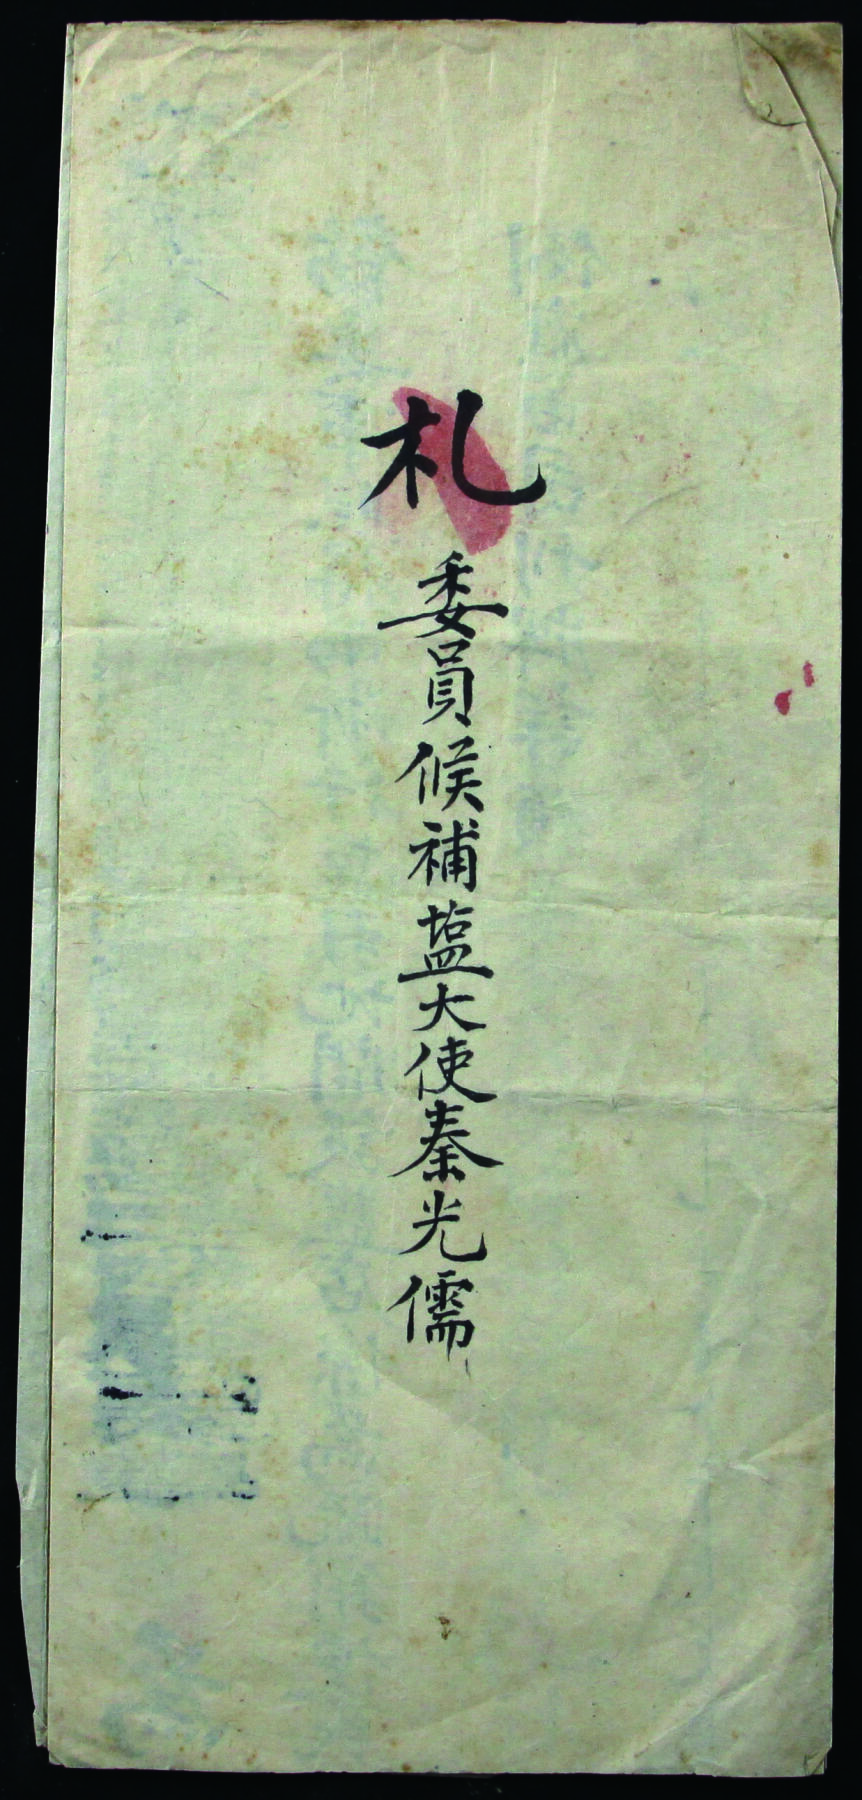 札委員候補塩大使秦光儒